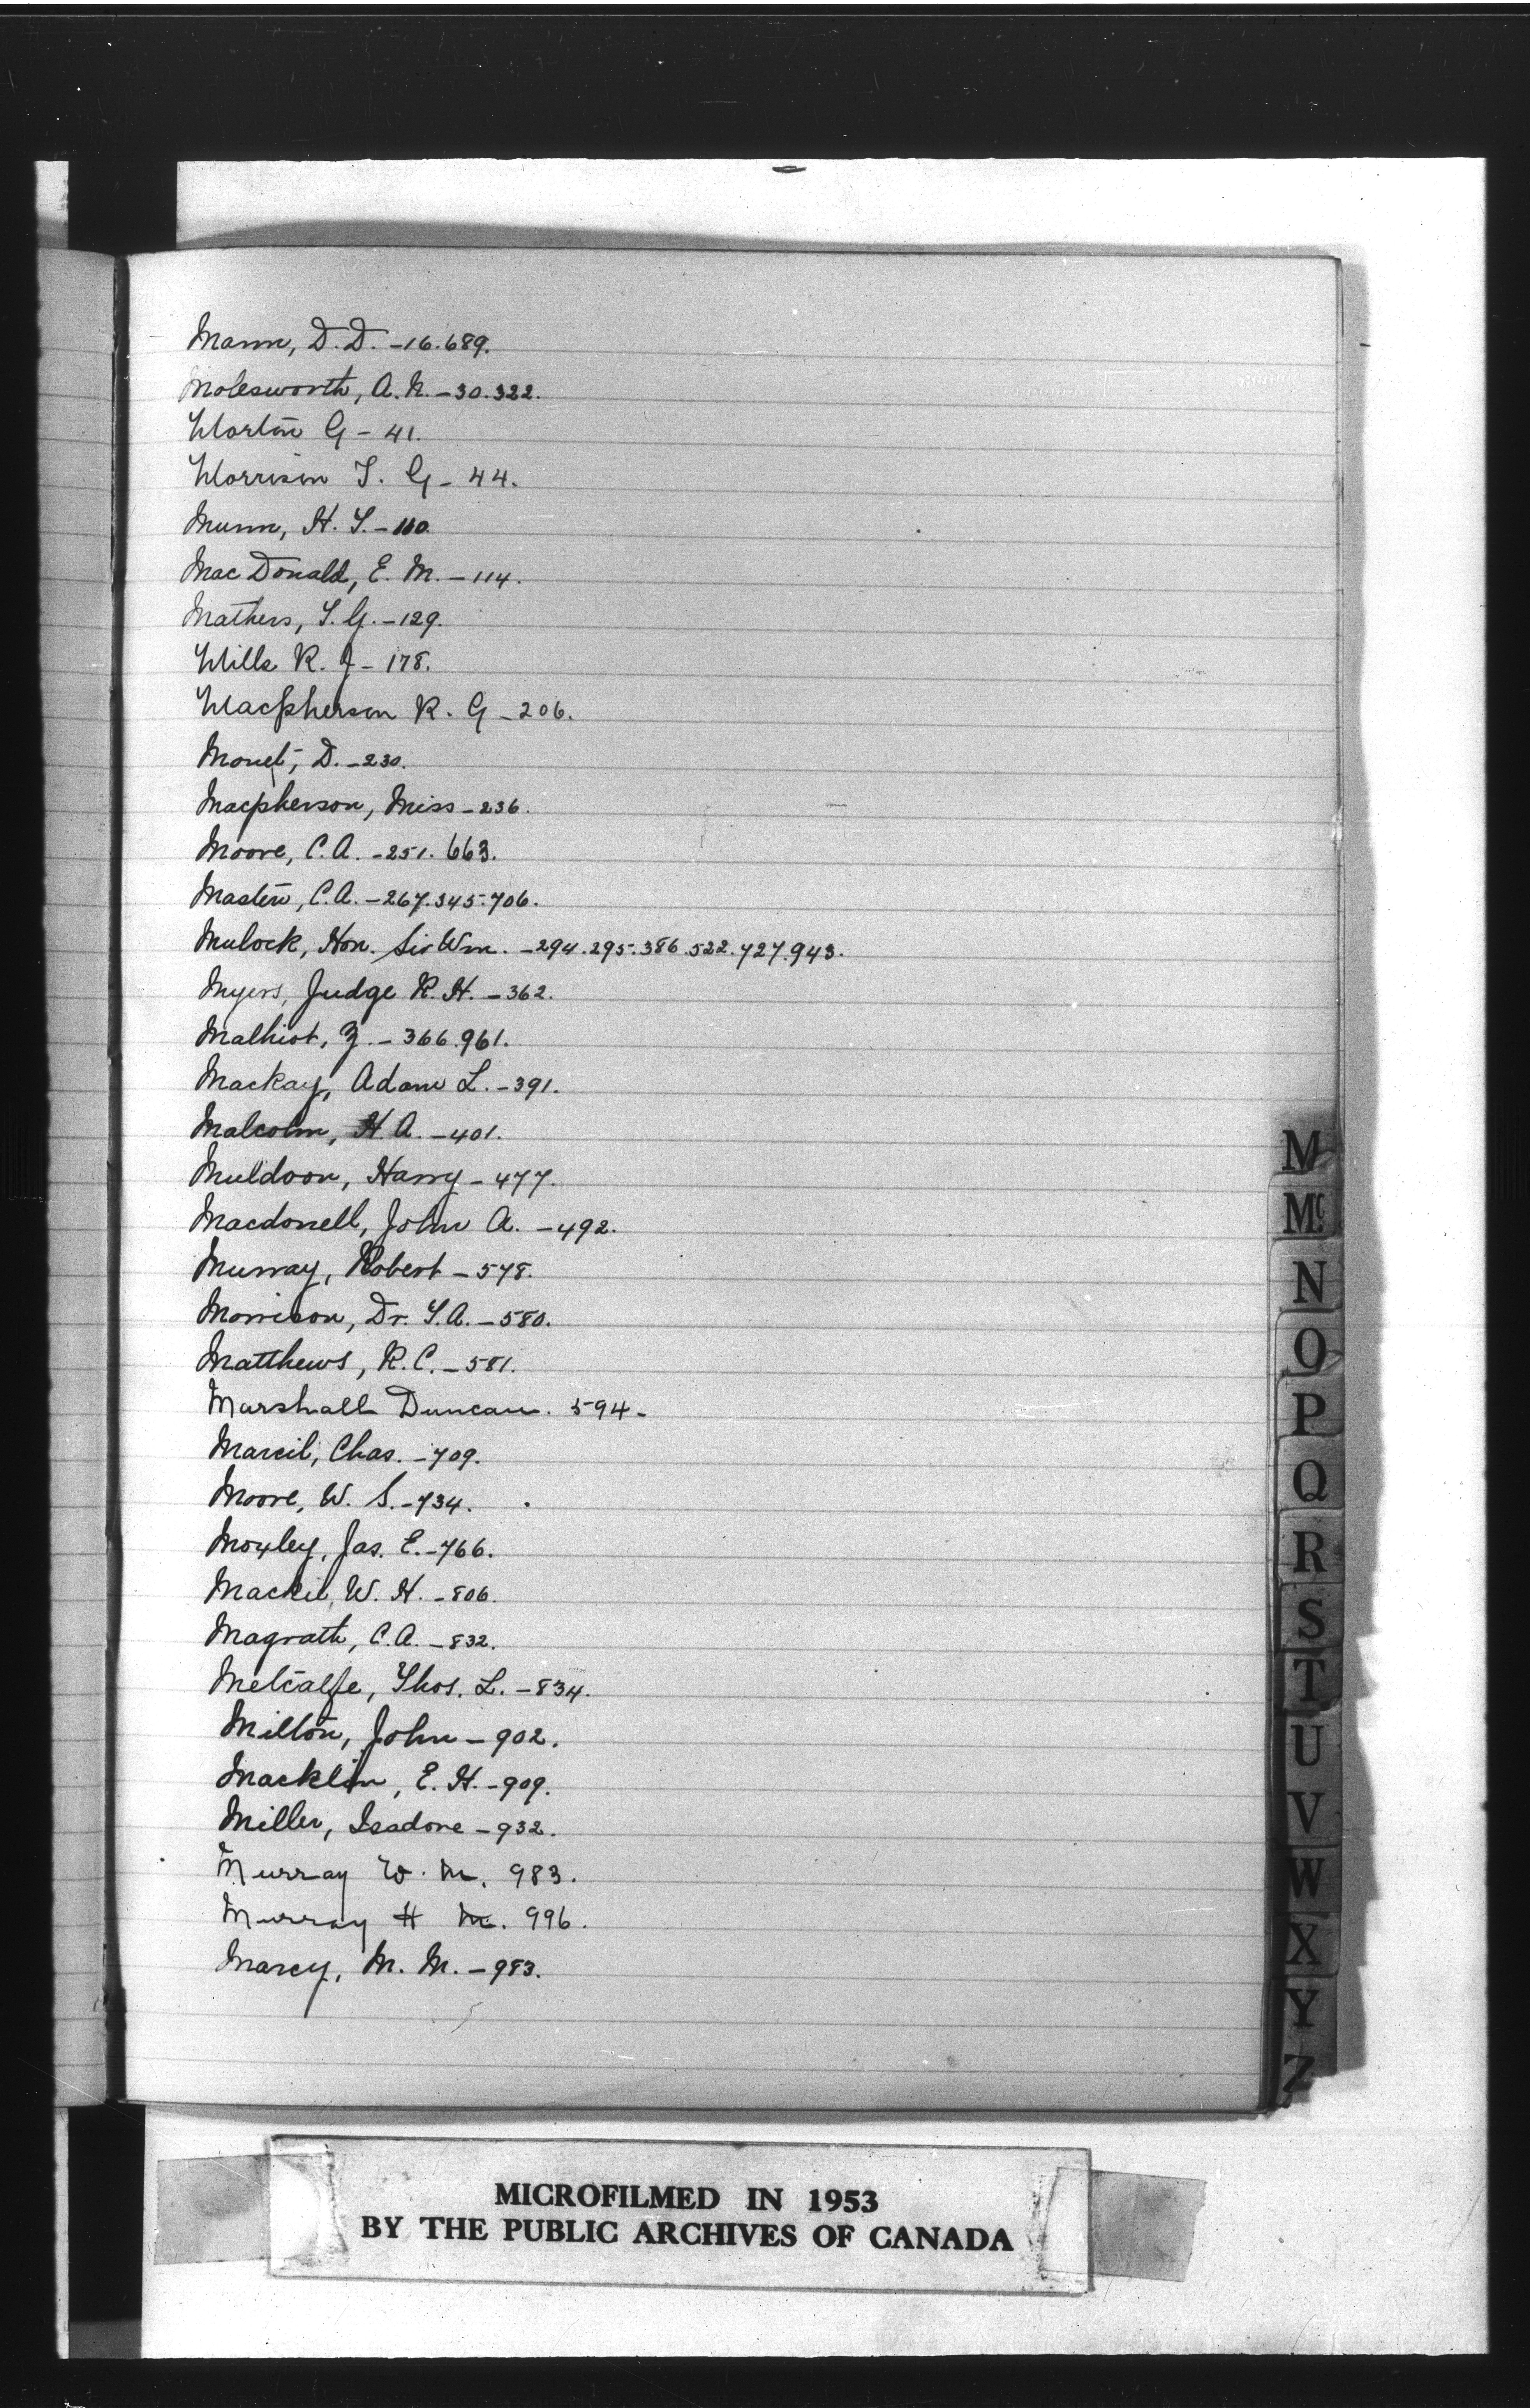 Mann, D. D. - 16. 689.
Molesworth, A. N. - 30. 322.
Morton G - 41.
Morrison T. G - 44.
Munn, H. T. - 110
MacDonald, E. M. - 114.
Mathers, T. G. - 129.
Mills R. J - 178.
Macpherson R. G - 206.
Monet, D. - 230.
Macpherson, Miss - 236.
Moore, C. A. - 251. 663.
Masten, C. A. - 267. 345. 706.
Mulock, Hon. Sir Wm. - 294. 295. 386. 522. 727. 943.
Myers, Judge R. H. - 362.
Malhiot, Z. - 366. 961.
Mackay, Adam L. - 391.
Malcolm, H. A. - 401.
Muldoon, Harry - 477.
Macdonell, John A. - 492.
Murray, Robert - 578.
Morrison, Dr. T. A. - 580.
Matthews, R. C. - 581.
Marshall Duncan. 594 -
Marcil, Chas. - 709.
Moore, W. S. - 734.
Moxley, Jas. E. - 766.
Mackie, W. H. - 806.
Magrath, C. A. - 832.
Metcalfe, Thos. L. - 834.
Milton, John - 902.
Macklin, E. H. - 909.
Miller, Isadore - 932.
Murray W. M. 983.
Murray H M. 996.
Marcy, M. M. - 983.
M
Mc
N
O
P
Q
R
S
T
U
V
W
X
Y
Z
MICROFILMED IN 1953
BY THE PUBLIC ARCHIVES OF CANADA